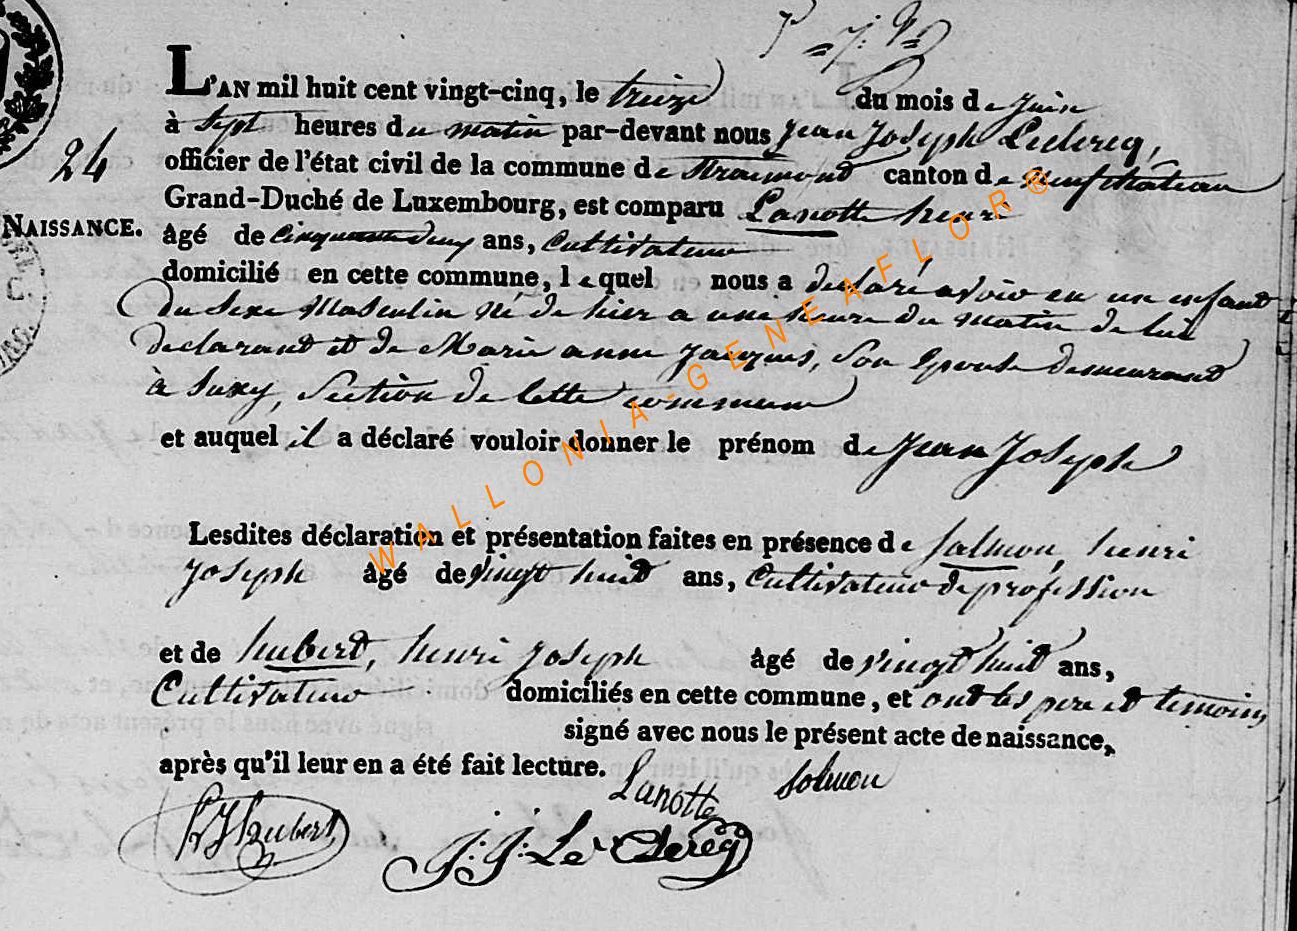 L'AN mil huit cent vingt-cinq, le treize du mois de Juin
à Sept heures du matin par-devant nous Jean Joseph Leclercq,
24
officier de l'état civil de la commune de Straimont canton de neufchâteau
Grand-Duché de Luxembourg, est comparu Lanotte henri
NAISSANCE.
âgé de Cinquante deux ans, Cultivateur
domicilié en cette commune, lequel nous a declaré avoir eu un enfant
du Sexe Masculin Né de hier a une heure du matin de lui
declarant et de Marie anne Jacques, Son Epouse demeurant
à Suxy, Section de Cette commune
et auquel il a déclaré vouloir donner le prénom de Jean Joseph
Lesdites déclaration et présentation faites en présence de Salmon, henri
Joseph âgé de vingt huit ans, Cultivateur de profession
et de hubert, henri Joseph âgé de vingt huit ans,
Cultivateur domiciliés en cette commune, et ont les pere et temoins
signé avec nous le présent acte de naissance,
après qu'il leur en a été fait lecture.
Lanotte Solmon
HJHubert J: J: Le Clercq
WALLONIA-GENEAFLOR®